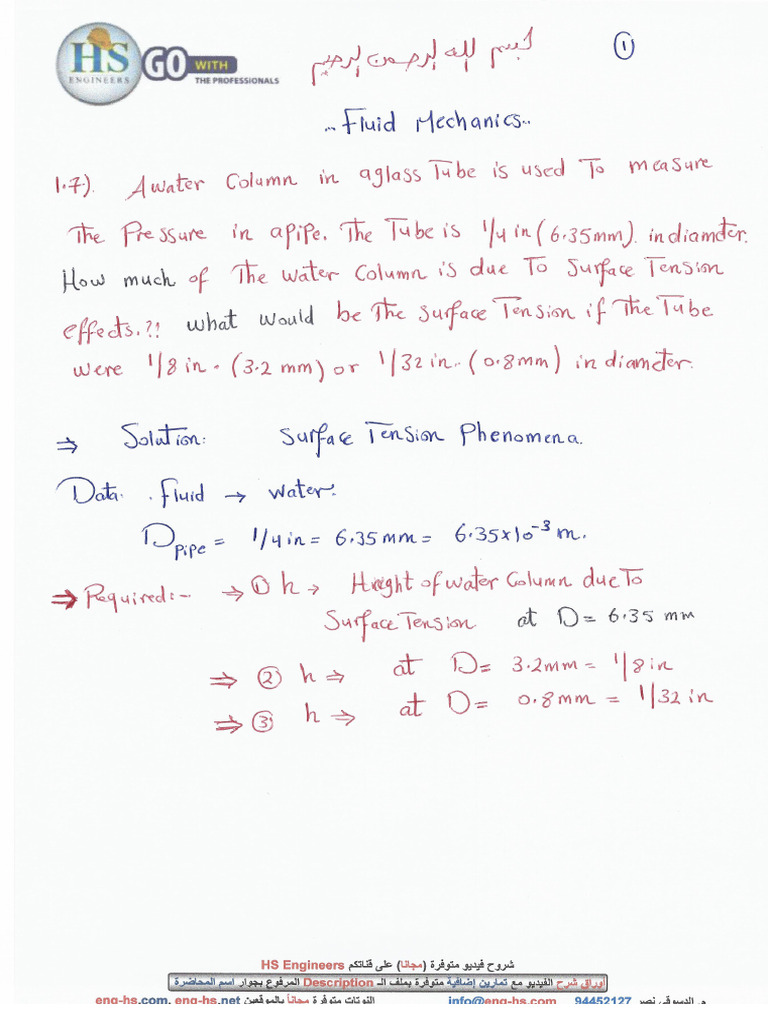 HS
ENGINEERS
GO WITH
THE PROFESSIONALS
بسم الله الرحمن الرحيم
1
.. Fluid Mechanics..
1.7). A water Column in a glass Tube is used To measure
The Pressure in a pipe. The Tube is 1/4 in (6.35mm). in diamter.
How much of The water Column is due To Surface Tension
effects.?! what would be The Surface Tension if The Tube
were 1/8 in. (3.2 mm) or 1/32 in.. (0.8mm) in diamter.
⇒ Solution: Surface Tension Phenomena.
Data. . Fluid → water.
D pipe = 1/4 in = 6.35 mm = 6.35x10⁻³ m.
⇒ Required:- → ① h → Height of water Column due To
Surface Tension at D = 6.35 mm
⇒ ② h ⇒ at D = 3.2mm = 1/8 in
⇒ ③ h ⇒ at D = 0.8mm = 1/32 in
شروح فيديو متوفرة (مجانا) على قناتكم HS Engineers
أوراق شرح الفيديو مع تمارين إضافية متوفرة بملف الـ Description المرفوع بجوار اسم المحاضرة
م. الدسوقي نصر 94452127 info@eng-hs.com النوتات متوفرة مجاناً بالموقعين eng-hs.com, eng-hs.net